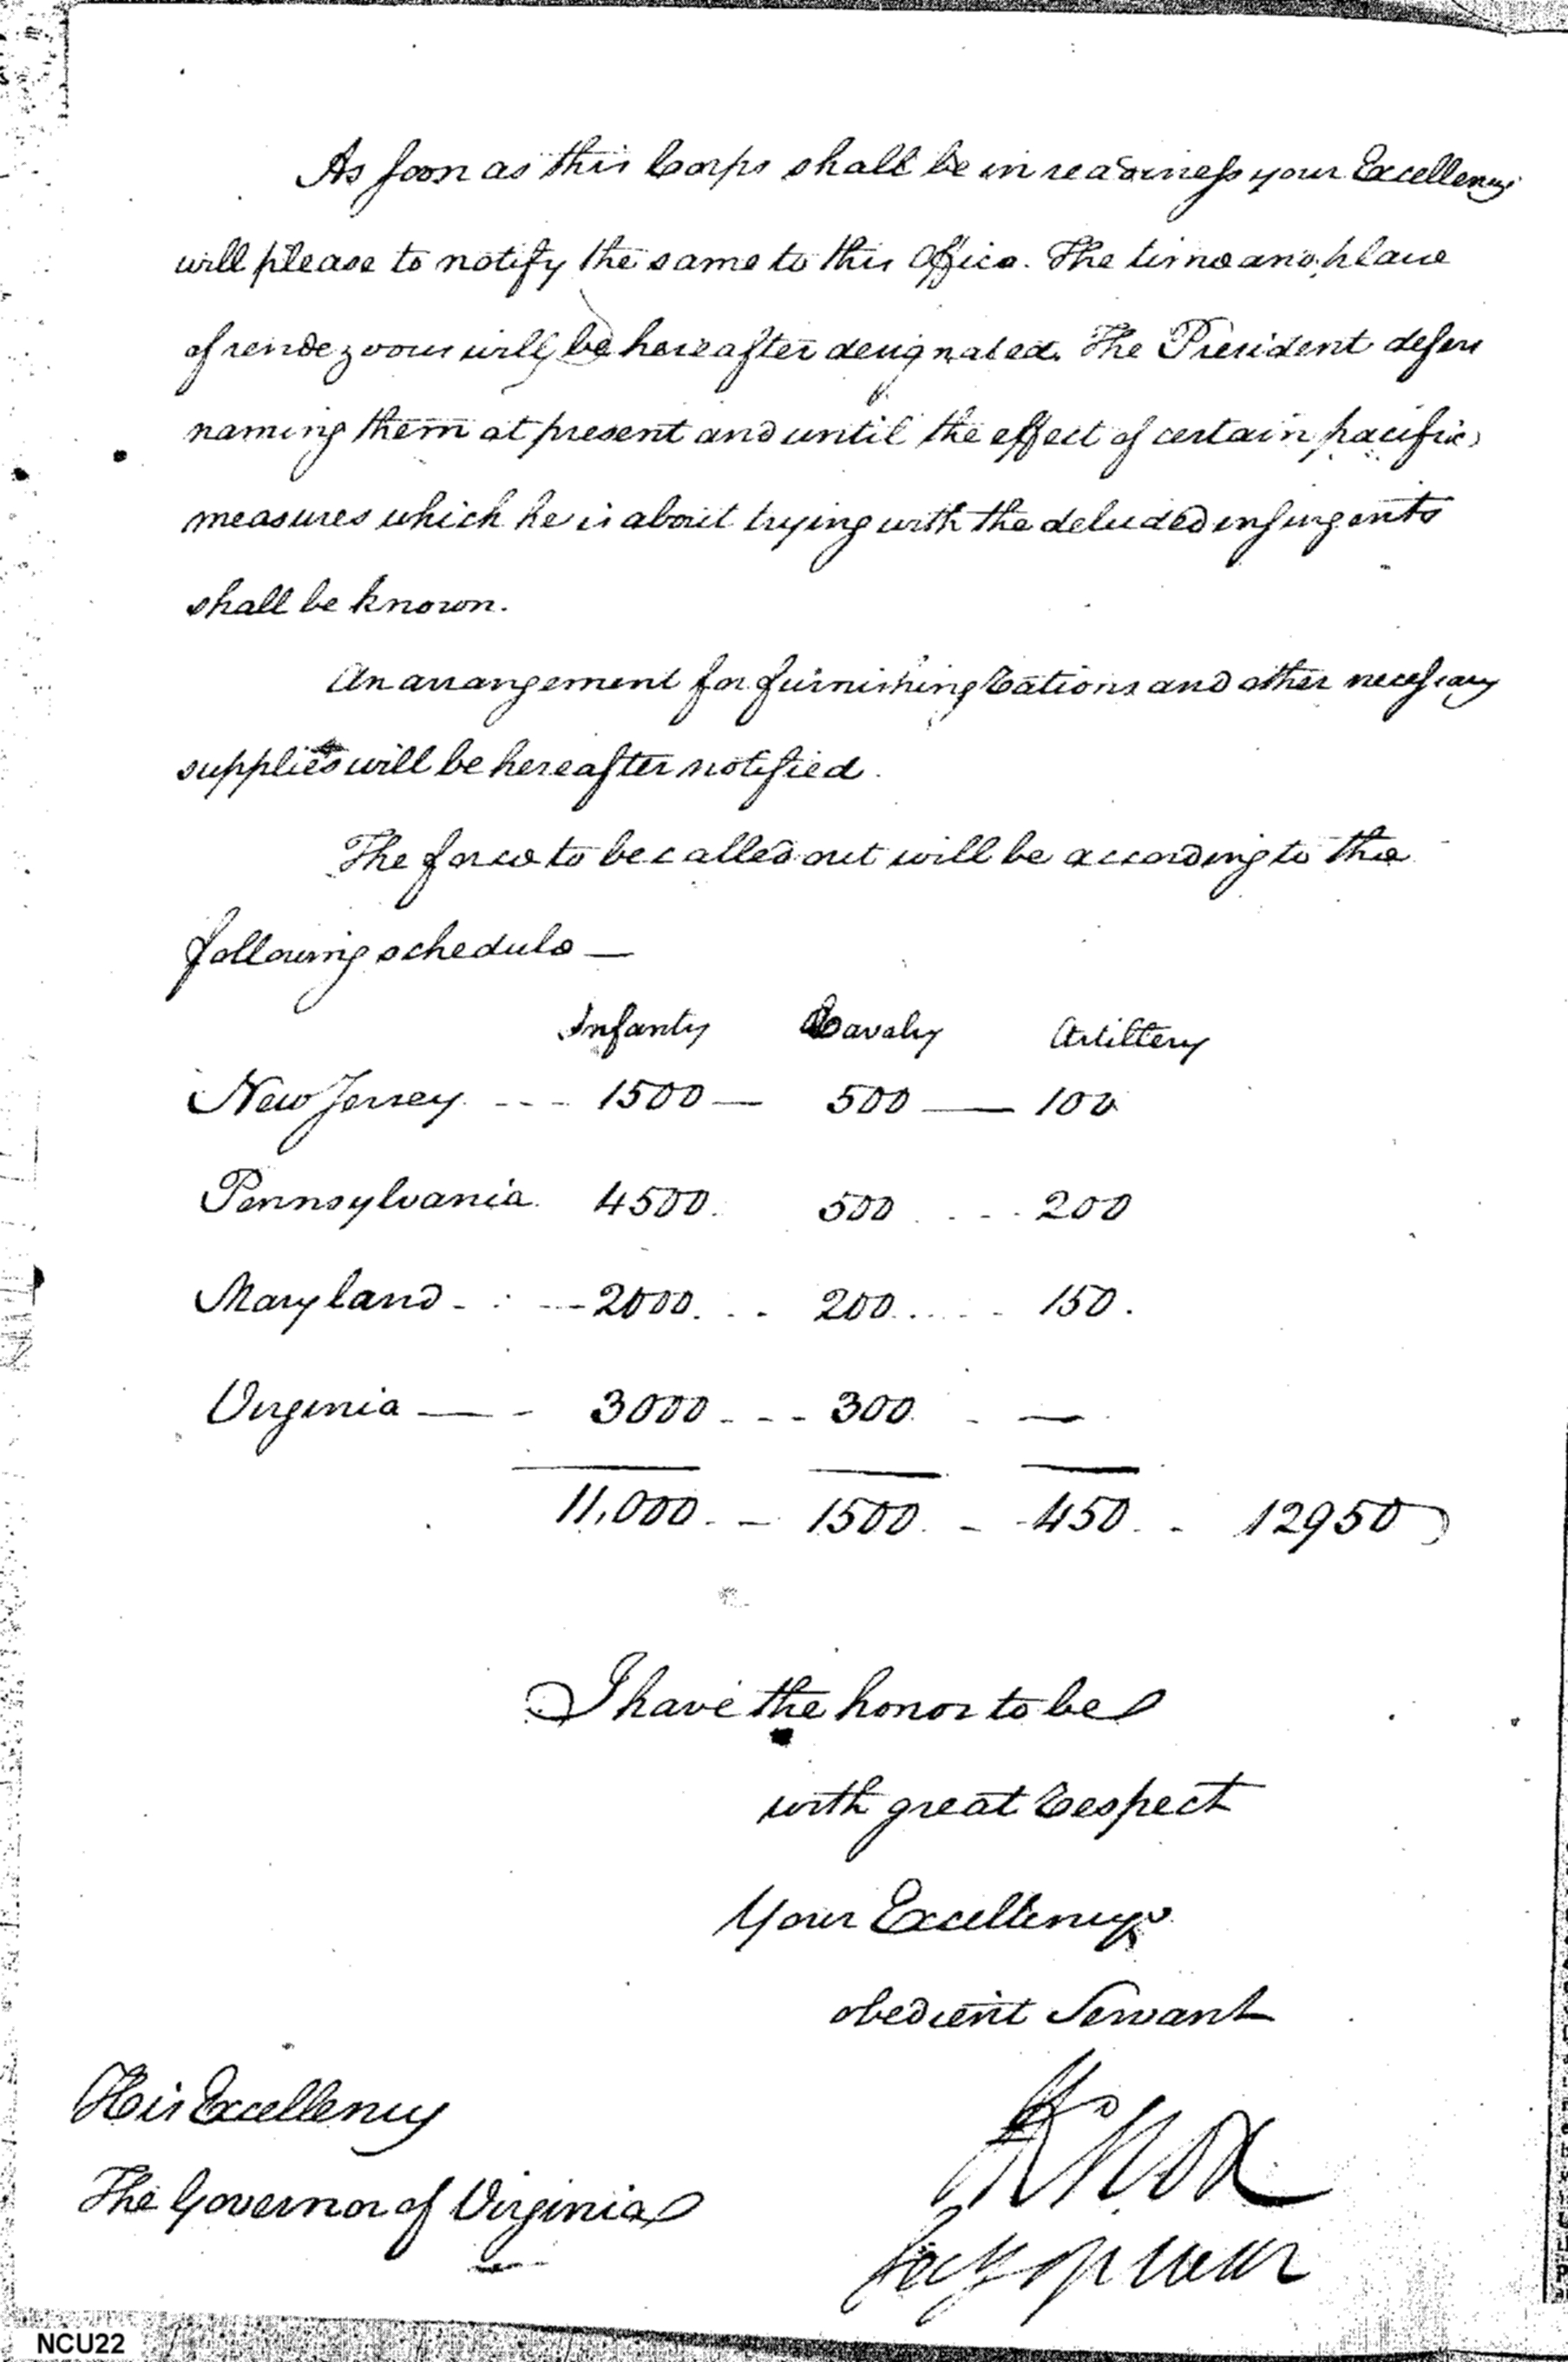 As soon as this Corps shall be in readiness your Excellency
will please to notify the same to this Office. The time and place
of rendezvous will be hereafter designated. The President defers
naming them at present and until the effect of certain pacific
measures which he is about trying with the deluded insurgents
shall be known.
An arrangement for furnishing Rations and other necessary
supplies will be hereafter notified.
The force to be called out will be according to the
following schedule —
Infanty Cavalry Artillery
New Jersey --- 1500 — 500 — 100
Pennsylvania. 4500. 500 . . - . 200
Maryland - . --- 2000. . . 200 . . . . . 150.
Virginia — - 3000 - - - 300. - —
11,000. - 1500. - 450. - 12950
I have the honor to be
with great Respect
Your Excellency's
obedient Servant
HKnox
Secy of War
His Excellency
The Governor of Virginia
NCU22